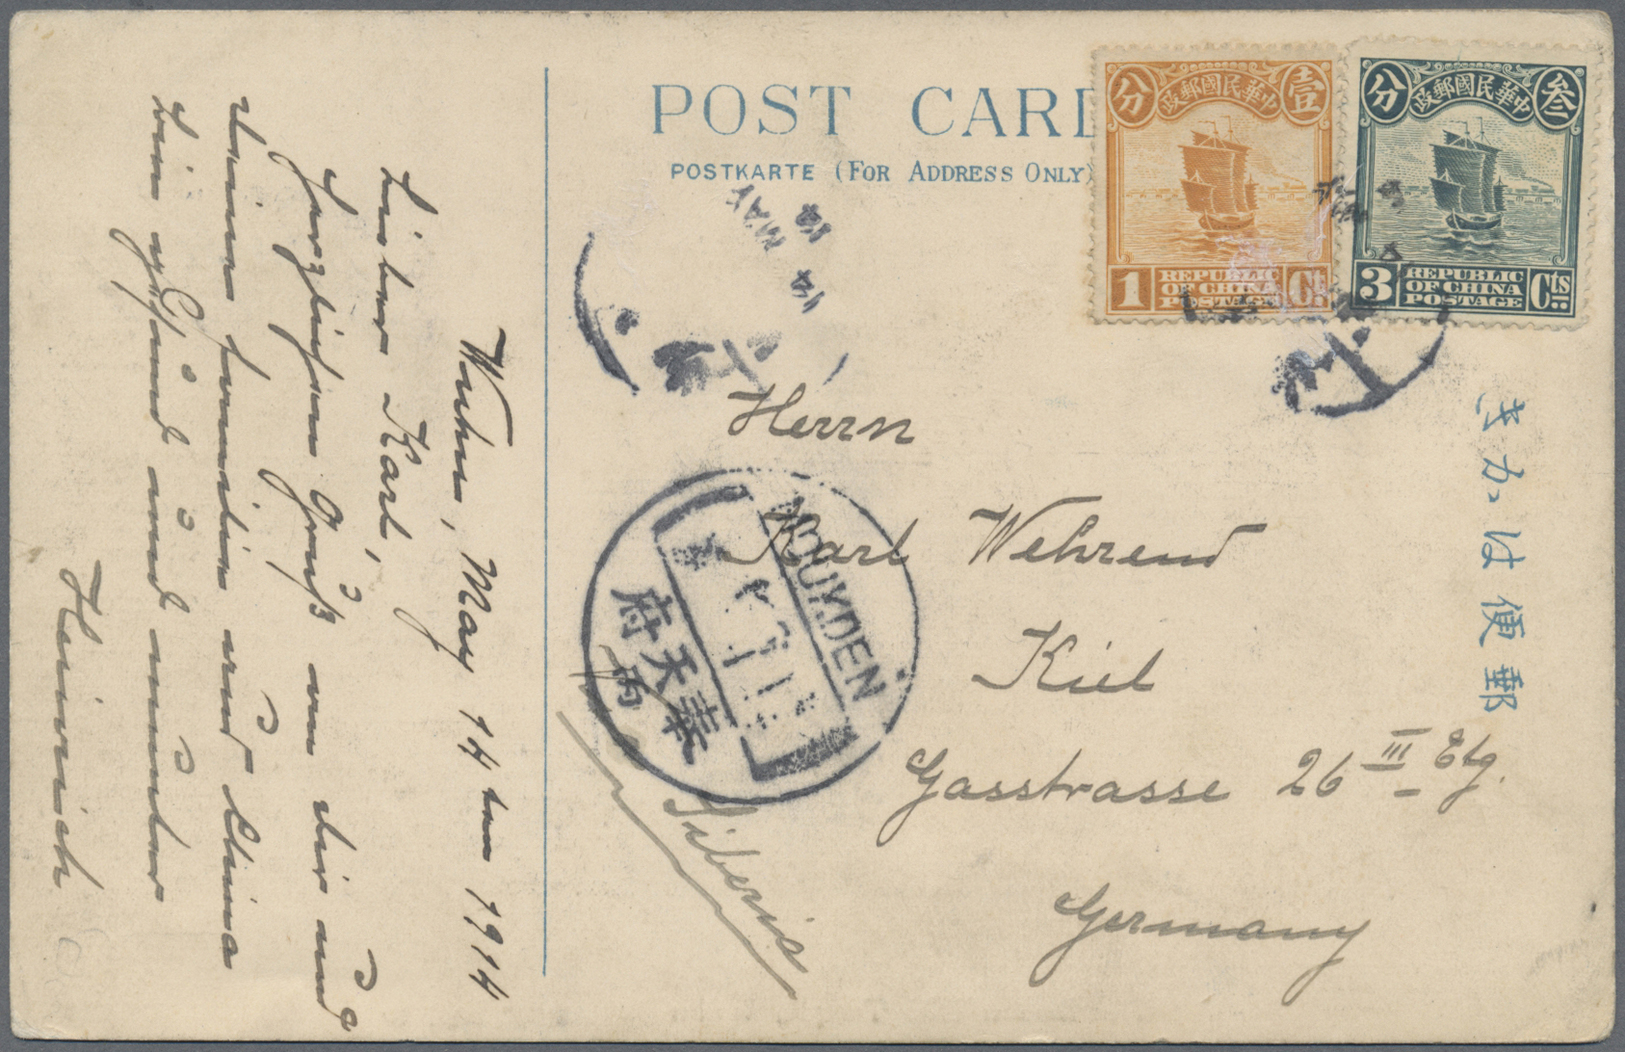 POST CARD
POSTKARTE (FOR ADDRESS ONLY)
中華民國郵政
壹
分
1
REPUBLIC
OF CHINA
POSTAGE
Ct
中華民國郵政
叁
分
3
REPUBLIC
OF CHINA
POSTAGE
Cts
郵便はかき
14 MAY
14
MOUKDEN
奉天府
Herrn
Karl Wehrend
Kiel
Gasstrasse 26 III Etg.
Germany
via Siberia
Wuhu, May 14ten 1914
Lieber Karl,
herzlichen Gruß von dir und
deiner Familie aus China
und munter
Heinrich